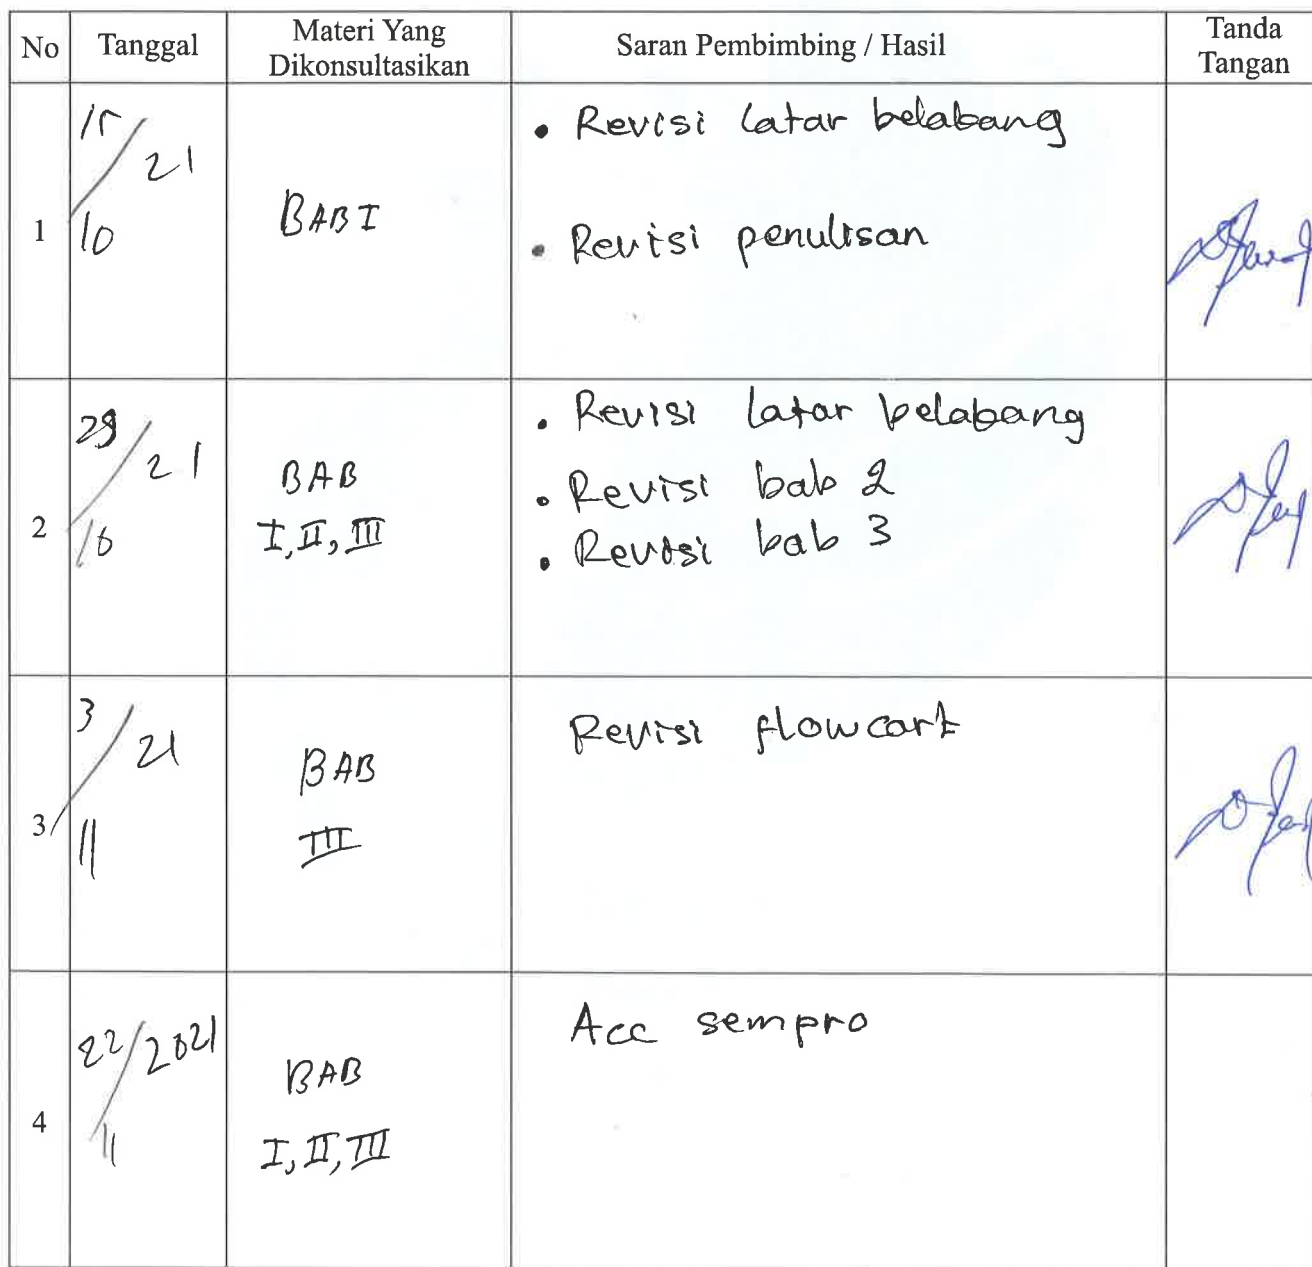 No Tanggal Materi Yang Dikonsultasikan Saran Pembimbing / Hasil Tanda Tangan
1 15/10 21 BAB I
• Revisi latar belakang
• Revisi penulisan
2 29/10 21 BAB I, II, III
• Revisi latar belakang
• Revisi bab 2
• Revisi bab 3
3 3/11 21 BAB III
Revisi flowcart
4 22/11 2021 BAB I, II, III
Acc sempro